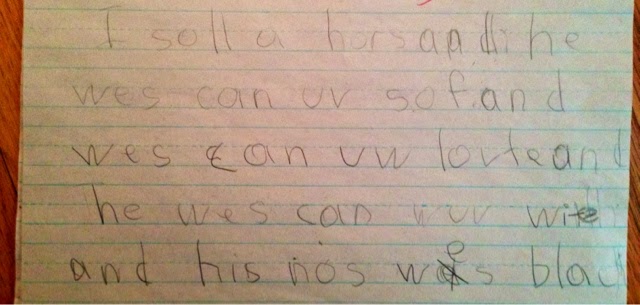 I soll a hors and he
wes can uv sof and
wes can uw lovte and
he wes can wuv wite
and his nos wes blac